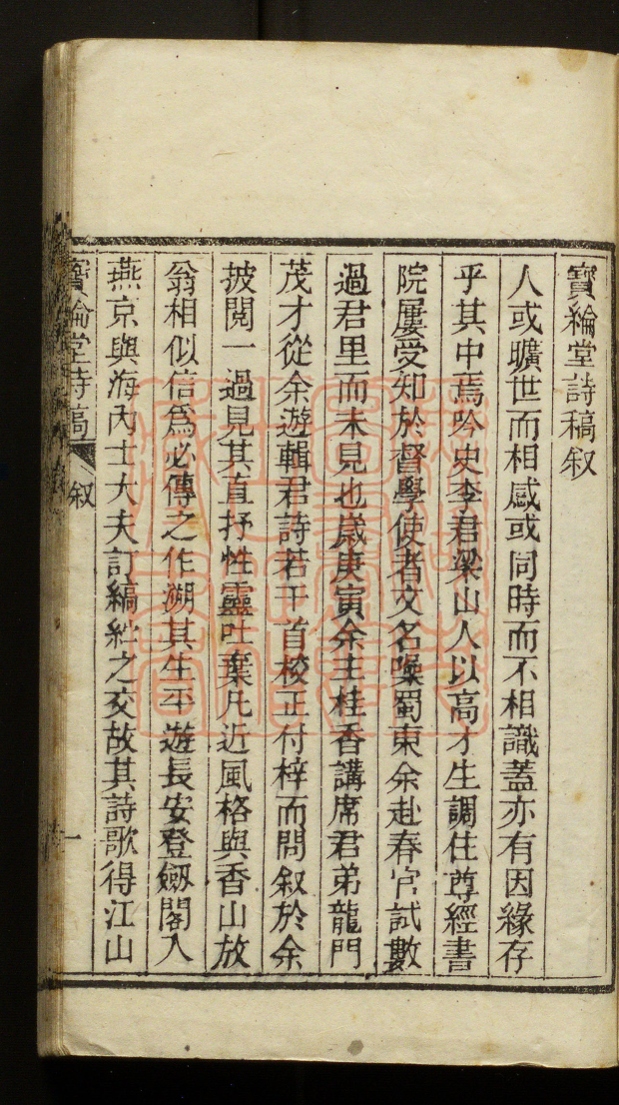 寶綸堂詩稿叙
人或曠世而相感或同時而不相識蓋亦有因緣存
乎其中焉吟史李君梁山人以高才生調住尊經書
院屢受知於督學使者文名噪蜀東余赴春官試數
過君里而未見也歲庚寅余主桂香講席君弟龍門
茂才從余遊輯君詩若干首校正付梓而問叙於余
披閱一過見其直抒性靈吐棄凡近風格與香山放
翁相似信為必傳之作溯其生平遊長安登劔閣入
燕京與海內士大夫訂縞紵之交故其詩歌得江山
寶綸堂詩稿 叙 一